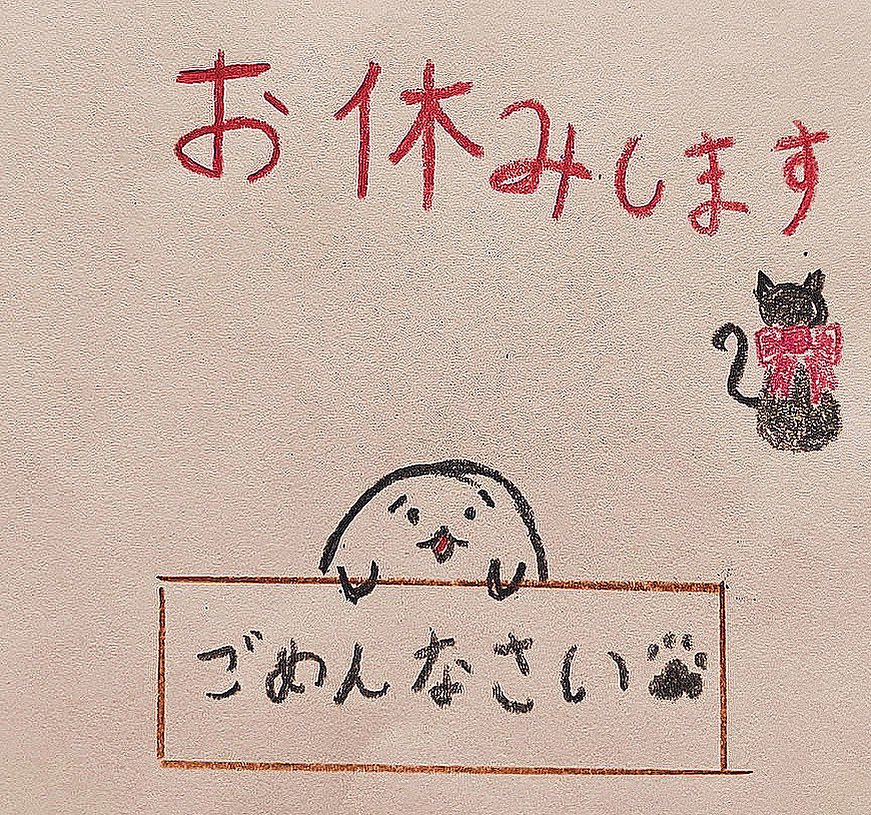 お休みします
ごめんなさい